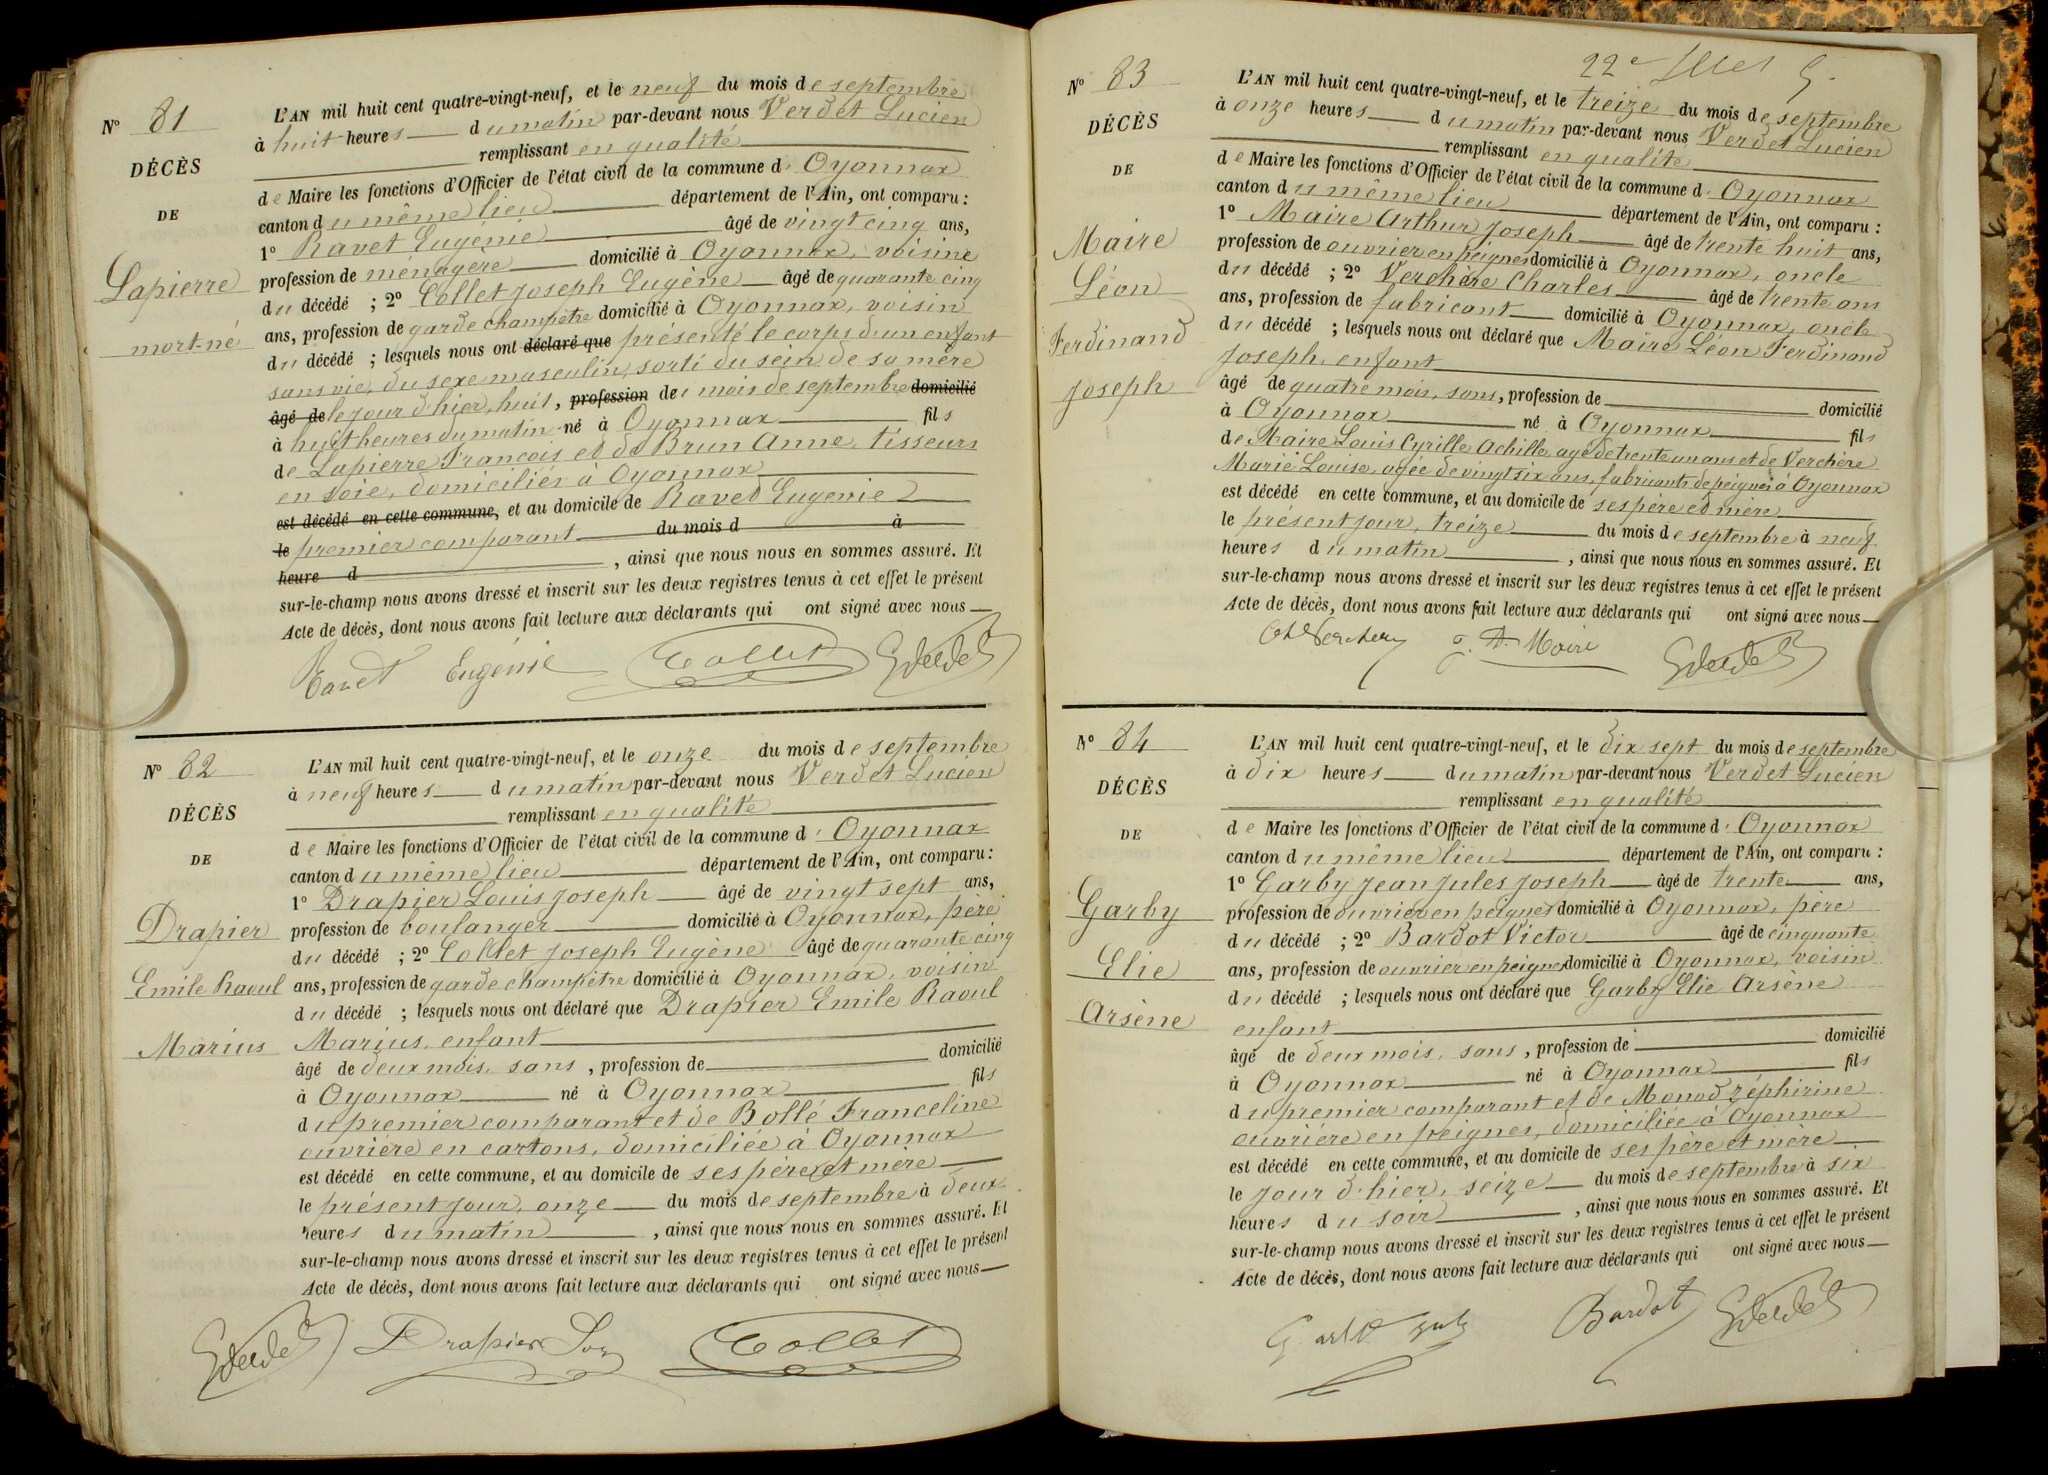 N° 81
DÉCÈS
DE
Lapierre
mort-né
L'AN mil huit cent quatre-vingt-neuf, et le neuf du mois de septembre
à huit heures du matin par-devant nous Verdet Lucien
remplissant en qualité
de Maire les fonctions d'Officier de l'état civil de la commune d' Oyonnax
canton du même lieu département de l'Ain, ont comparu :
1° Ravet Eugénie âgé de vingt cinq ans,
profession de ménagère domicilié à Oyonnax, voisine
du décédé ; 2° Collet Joseph Eugène âgé de quarante cinq
ans, profession de garde champêtre domicilié à Oyonnax, voisin
du décédé ; lesquels nous ont déclaré que présenté le corps d'un enfant
sans vie, du sexe masculin, sorti du sein de sa mère
âgé de le jour d'hier, huit, profession de du mois de septembre domicilié
à huit heures du matin né à Oyonnax fils
de Lapierre François et de Brun Anne, tisseurs
en soie, domiciliés à Oyonnax
est décédé en cette commune, et au domicile de Ravet Eugénie
le premier comparant du mois d à
heure d , ainsi que nous nous en sommes assuré. Et
sur-le-champ nous avons dressé et inscrit sur les deux registres tenus à cet effet le présent
Acte de décès, dont nous avons fait lecture aux déclarants qui ont signé avec nous
Ravet Eugénie Collet
N° 82
DÉCÈS
DE
Drapier
Emile Raoul
Marius
L'AN mil huit cent quatre-vingt-neuf, et le onze du mois de septembre
à neuf heures du matin par-devant nous Verdet Lucien
remplissant en qualité
de Maire les fonctions d'Officier de l'état civil de la commune d' Oyonnax
canton du même lieu département de l'Ain, ont comparu :
1° Drapier Louis Joseph âgé de vingt sept ans,
profession de boulanger domicilié à Oyonnax, père
du décédé ; 2° Collet Joseph Eugène âgé de quarante cinq
ans, profession de garde champêtre domicilié à Oyonnax, voisin
du décédé ; lesquels nous ont déclaré que Drapier Emile Raoul
Marius, enfant
âgé de deux mois, sans, profession de domicilié
à Oyonnax né à Oyonnax fils
du premier comparant et de Bollé Franceline
ouvrière en cartons, domiciliée à Oyonnax
est décédé en cette commune, et au domicile de ses père et mère
le présent jour, onze du mois de septembre à deux
heures du matin , ainsi que nous nous en sommes assuré. Et
sur-le-champ nous avons dressé et inscrit sur les deux registres tenus à cet effet le présent
Acte de décès, dont nous avons fait lecture aux déclarants qui ont signé avec nous
Drapier Collet
22e
N° 83
DÉCÈS
DE
Maire
Léon
Ferdinand
Joseph
L'AN mil huit cent quatre-vingt-neuf, et le treize du mois de septembre
à onze heures du matin par-devant nous Verdet Lucien
remplissant en qualité
de Maire les fonctions d'Officier de l'état civil de la commune d' Oyonnax
canton du même lieu département de l'Ain, ont comparu :
1° Maire Arthur Joseph âgé de trente huit ans,
profession de ouvrier en peignes domicilié à Oyonnax, oncle
du décédé ; 2° Verchère Charles âgé de trente ans
ans, profession de fabricant domicilié à Oyonnax, oncle
du décédé ; lesquels nous ont déclaré que Maire Léon Ferdinand
Joseph, enfant
âgé de quatre mois, sans, profession de domicilié
à Oyonnax né à Oyonnax fils
de Maire Louis Cyrille Achille, agé de trente un ans et de Verchère
Marie Louise, agée de vingt six ans, fabricants de peignes à Oyonnax
est décédé en cette commune, et au domicile de ses père et mère
le présent jour, treize du mois de septembre à neuf
heures du matin , ainsi que nous nous en sommes assuré. Et
sur-le-champ nous avons dressé et inscrit sur les deux registres tenus à cet effet le présent
Acte de décès, dont nous avons fait lecture aux déclarants qui ont signé avec nous
Maire
N° 84
DÉCÈS
DE
Garby
Elie
Arsène
L'AN mil huit cent quatre-vingt-neuf, et le dix sept du mois de septembre
à dix heures du matin par-devant nous Verdet Lucien
remplissant en qualité
de Maire les fonctions d'Officier de l'état civil de la commune d' Oyonnax
canton du même lieu département de l'Ain, ont comparu :
1° Garby Jean Jules Joseph âgé de trente ans,
profession de ouvrier en peignes domicilié à Oyonnax, père
du décédé ; 2° Bardot Victor âgé de cinquante
ans, profession de ouvrier en peignes domicilié à Oyonnax, voisin
du décédé ; lesquels nous ont déclaré que Garby Elie Arsène
enfant
âgé de deux mois, sans, profession de domicilié
à Oyonnax né à Oyonnax fils
du premier comparant et de Monod Zéphirine
ouvrière en peignes, domiciliée à Oyonnax
est décédé en cette commune, et au domicile de ses père et mère
le jour d'hier, seize du mois de septembre à six
heures du soir , ainsi que nous nous en sommes assuré. Et
sur-le-champ nous avons dressé et inscrit sur les deux registres tenus à cet effet le présent
Acte de décès, dont nous avons fait lecture aux déclarants qui ont signé avec nous
Bardot